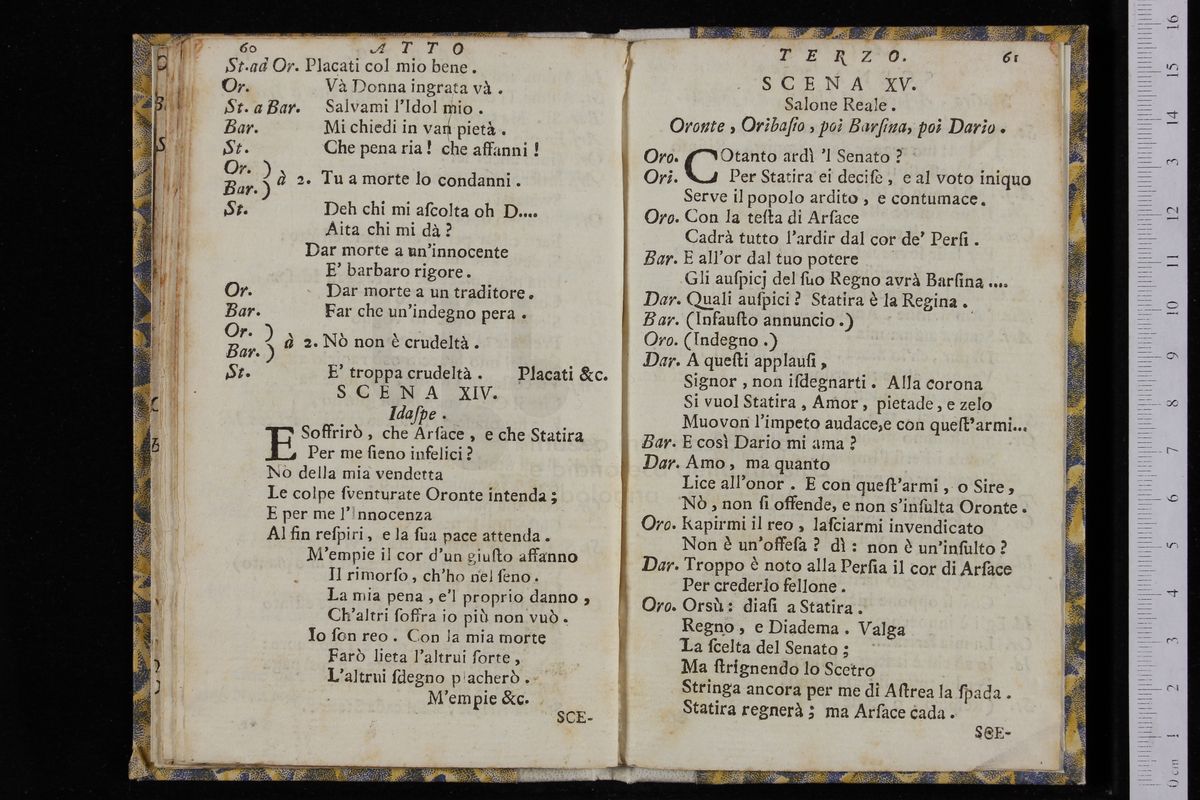 60 ATTO
St. ad Or. Placati col mio bene.
Or. Và Donna ingrata và.
St. a Bar. Salvami l'Idol mio.
Bar. Mi chiedi in van pietà.
St. Che pena ria! che affanni!
Or. )
Bar. ) à 2. Tu a morte lo condanni.
St. Deh chi mi aſcolta oh D....
Aita chi mi dà?
Dar morte a un'innocente
E' barbaro rigore.
Or. Dar morte a un traditore.
Bar. Far che un'indegno pera.
Or. )
Bar. ) à 2. Nò non è crudeltà.
St. E' troppa crudeltà. Placati &c.
SCENA XIV.
Idaſpe.
E Soffrirò, che Arſace, e che Statira
Per me ſieno infelici?
Nò della mia vendetta
Le colpe ſventurate Oronte intenda;
E per me l'Innocenza
Al fin reſpiri, e la ſua pace attenda.
M'empie il cor d'un giuſto affanno
Il rimorſo, ch'ho nel ſeno.
La mia pena, e'l proprio danno,
Ch'altri ſoffra io più non vuò.
Io ſon reo. Con la mia morte
Farò lieta l'altrui ſorte,
L'altrui ſdegno placherò.
M'empie &c.
SCE-
TERZO. 61
SCENA XV.
Salone Reale.
Oronte, Oribaſio, poi Barſina, poi Dario.
Oro. COtanto ardì 'l Senato?
Ori. Per Statira ei deciſe, e al voto iniquo
Serve il popolo ardito, e contumace.
Oro. Con la teſta di Arſace
Cadrà tutto l'ardir dal cor de' Perſi.
Bar. E all'or dal tuo potere
Gli auſpicj del ſuo Regno avrà Barſina....
Dar. Quali auſpici? Statira è la Regina.
Bar. (Infauſto annuncio.)
Oro. (Indegno.)
Dar. A queſti applauſi,
Signor, non iſdegnarti. Alla corona
Si vuol Statira, Amor, pietade, e zelo
Muovon l'impeto audace, e con queſt'armi...
Bar. E così Dario mi ama?
Dar. Amo, ma quanto
Lice all'onor. E con queſt'armi, o Sire,
Nò, non ſi offende, e non s'inſulta Oronte.
Oro. Rapirmi il reo, laſciarmi invendicato
Non è un'offeſa? dì: non è un'inſulto?
Dar. Troppo è noto alla Perſia il cor di Arſace
Per crederlo fellone.
Oro. Orsù: diaſi a Statira.
Regno, e Diadema. Valga
La ſcelta del Senato;
Ma ſtrignendo lo Scetro
Stringa ancora per me di Aſtrea la ſpada.
Statira regnerà; ma Arſace cada.
SCE-